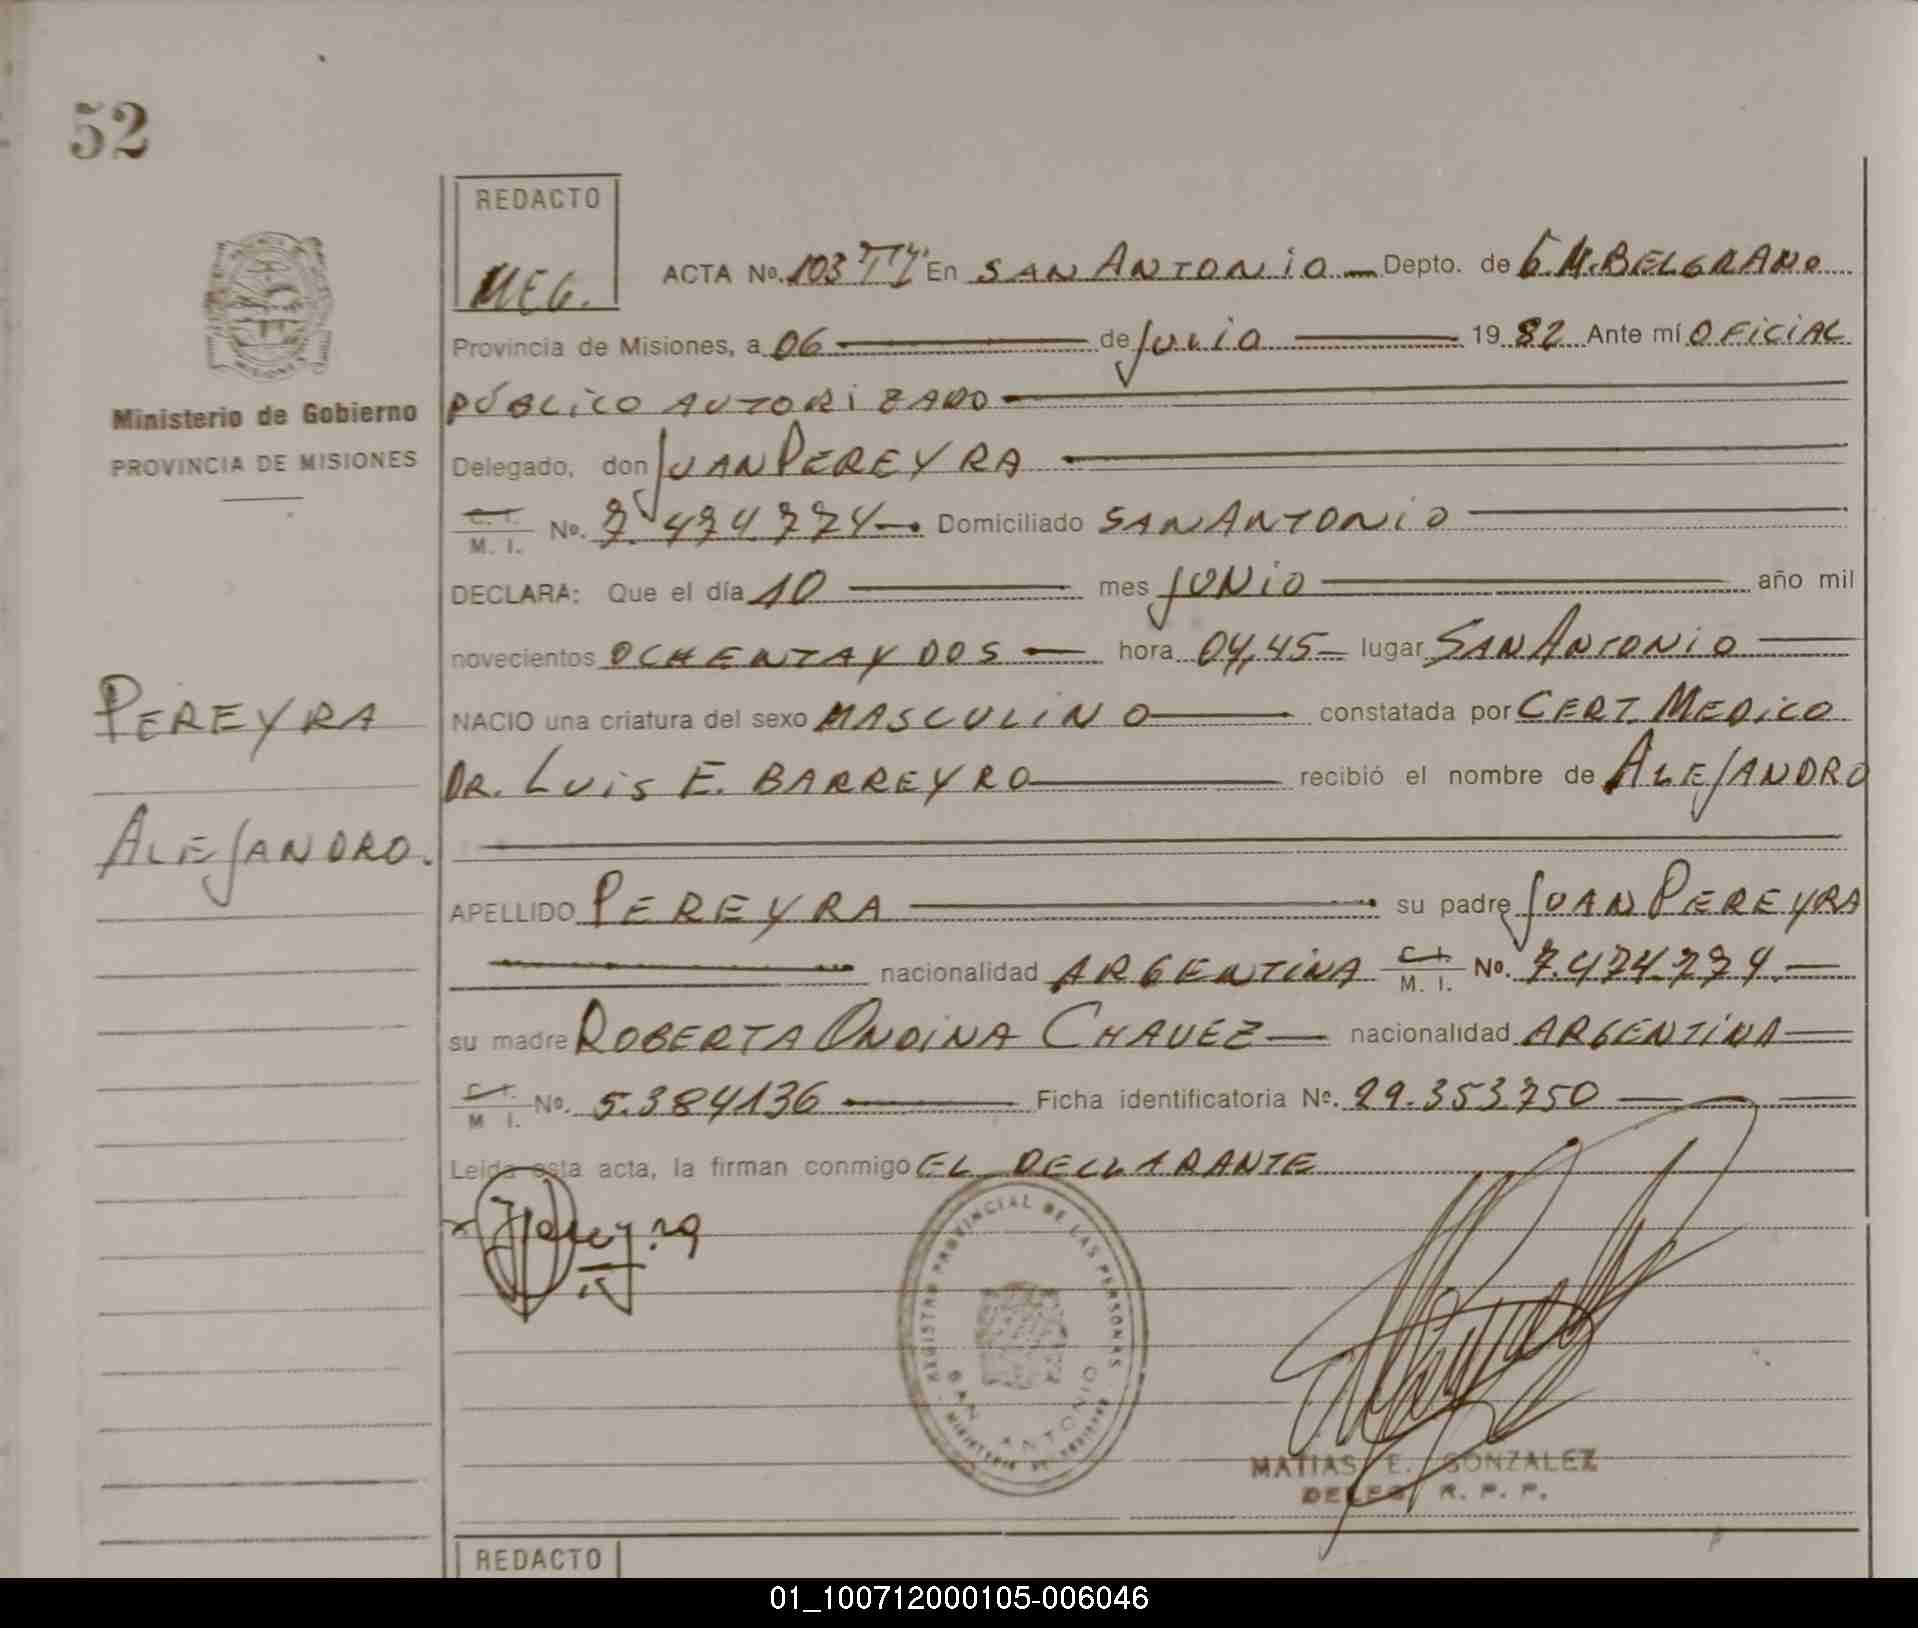 52
REDACTO
MEG.
ACTA No. 103 TTY En SAN ANTONIO Depto. de G.M. BELGRANO
Provincia de Misiones, a 06 de Julio 1982 Ante mí OFICIAL
PÚBLICO AUTORIZADO
Ministerio de Gobierno
PROVINCIA DE MISIONES
Delegado, don JUAN PEREYRA
C. I. M. I. No. 7.474.774 Domiciliado SAN ANTONIO
DECLARA: Que el día 10 mes JUNIO año mil
novecientos OCHENTA Y DOS hora 04,45 lugar SAN ANTONIO
PEREYRA
NACIO una criatura del sexo MASCULINO constatada por CERT. MEDICO
DR. LUIS E. BARREYRO recibió el nombre de ALEJANDRO
ALEJANDRO.
APELLIDO PEREYRA su padre JUAN PEREYRA
nacionalidad ARGENTINA C. I. M. I. No. 7.474.774
su madre ROBERTA ONDINA CHAVEZ nacionalidad ARGENTINA
C. I. M. I. No. 5.384136 Ficha identificatoria No. 29.353.750
Leida esta acta, la firman conmigo EL DECLARANTE
REGISTRO PROVINCIAL DE LAS PERSONAS
SAN ANTONIO
MINISTERIO DE GOBIERNO
MATIAS E. GONZALEZ
DELEG. R. P. P.
REDACTO
01_100712000105-006046